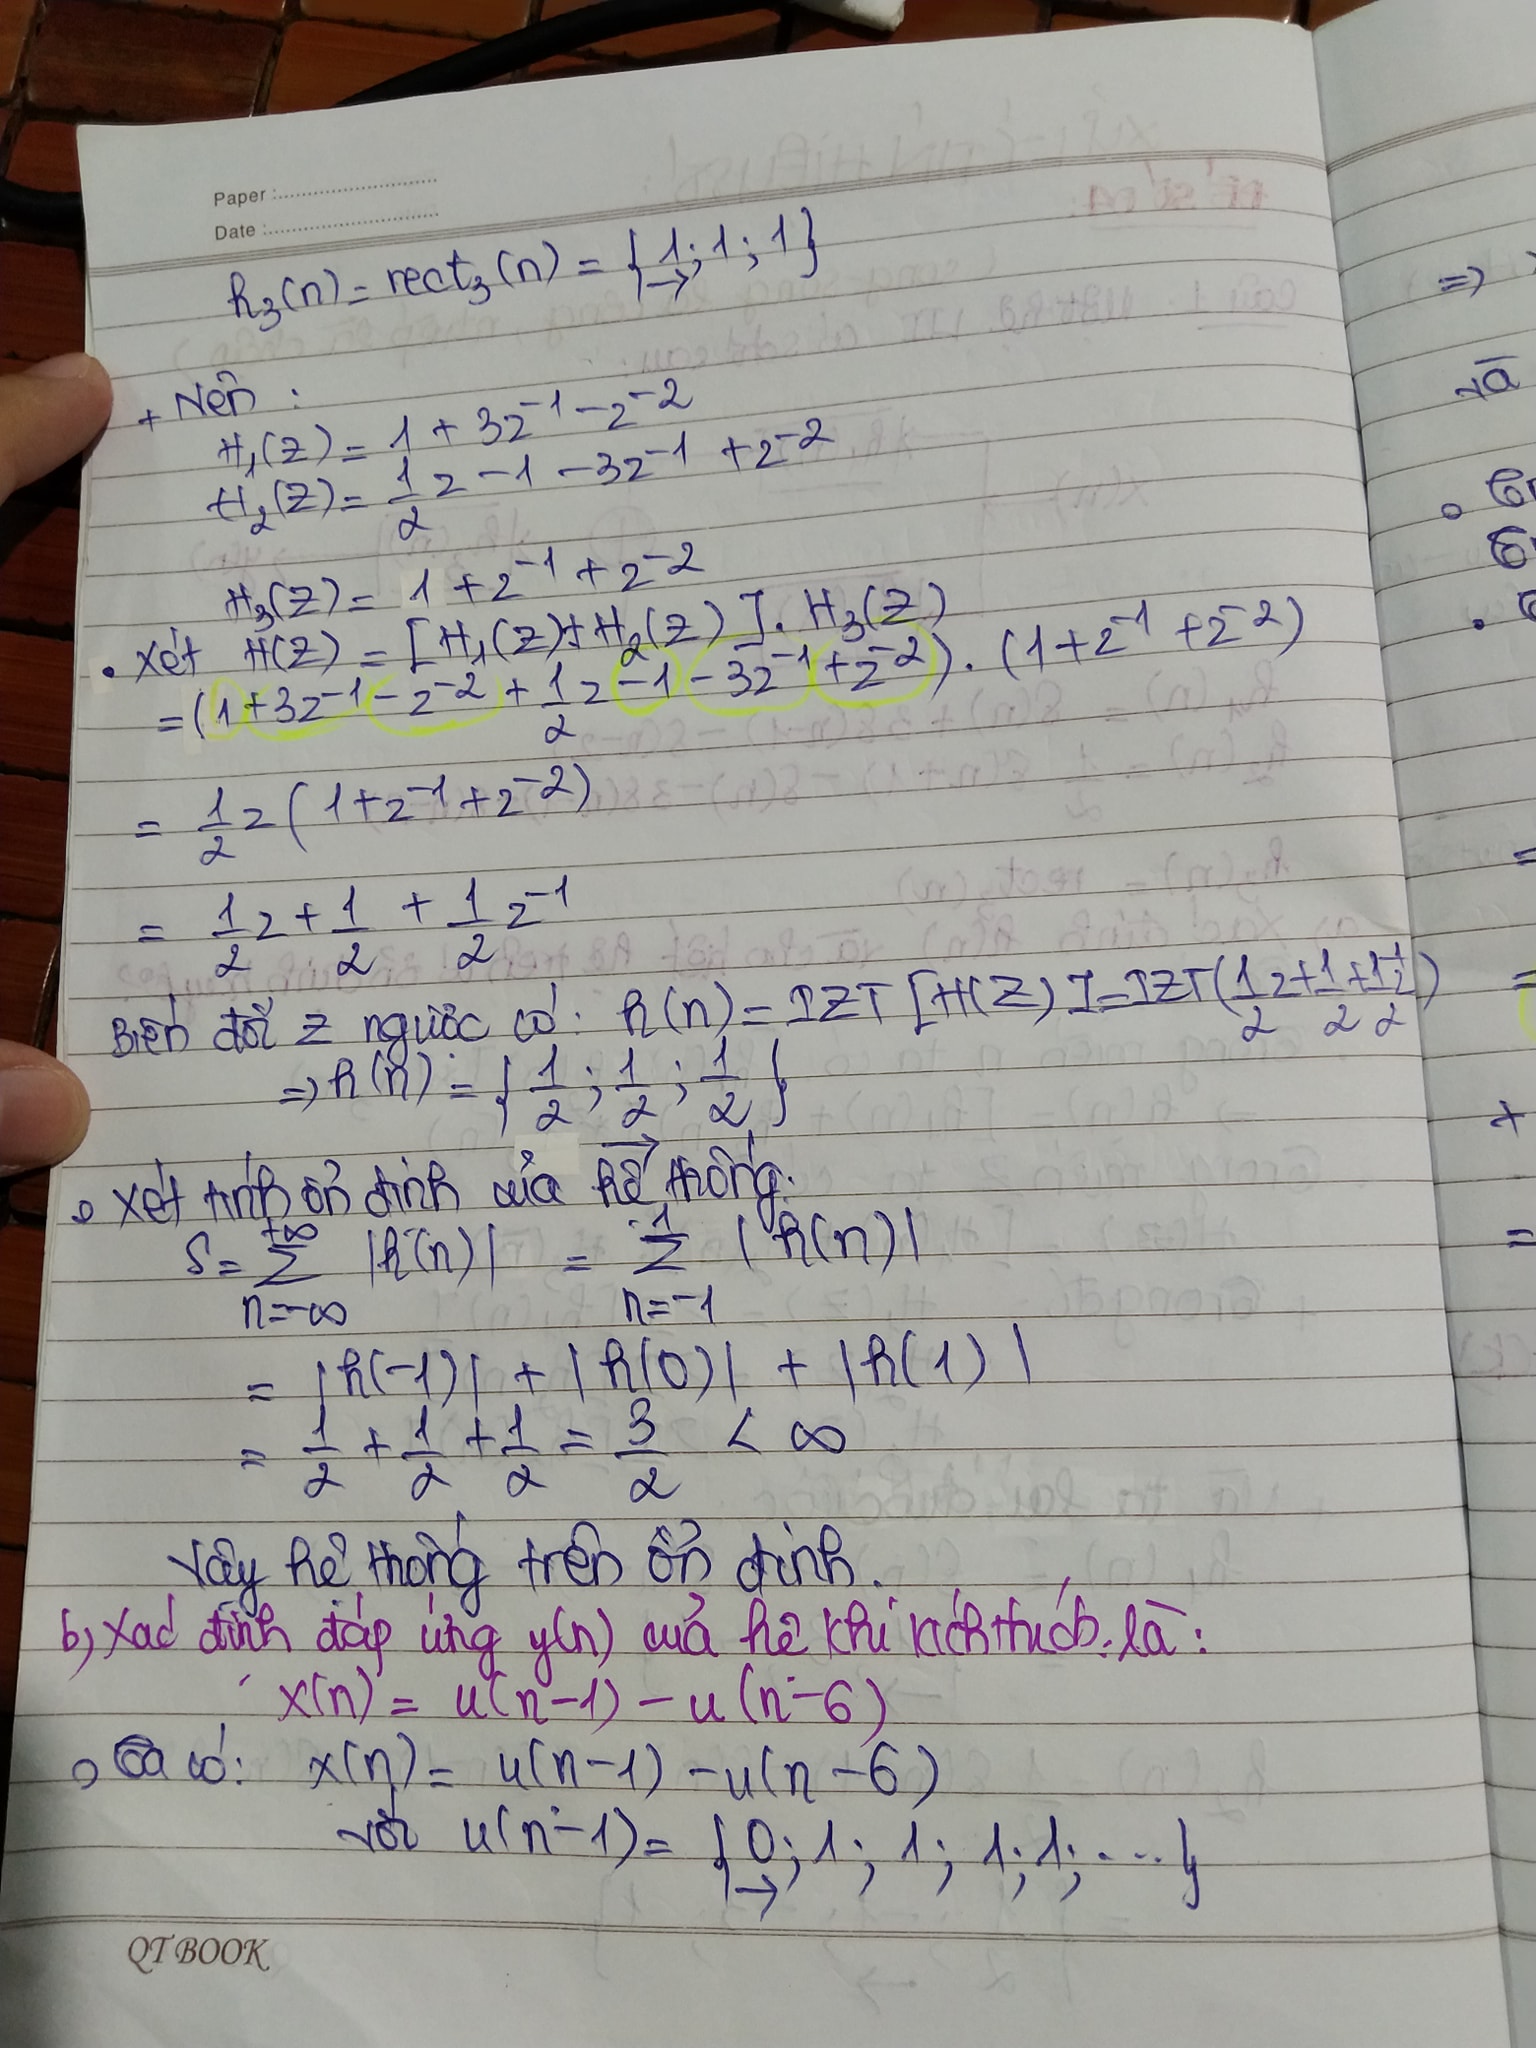 Paper :
Date :
h₃(n) = rect₃(n) = { 1; 1; 1 }
→
+ Nên :
H₁(z) = 1 + 3z⁻¹ - z⁻²
H₂(z) = 1/2 z - 1 - 3z⁻¹ + z⁻²
H₃(z) = 1 + z⁻¹ + z⁻²
• Xét H(z) = [H₁(z) + H₂(z)] . H₃(z)
= (1 + 3z⁻¹ - z⁻² + 1/2 z - 1 - 3z⁻¹ + z⁻²) . (1 + z⁻¹ + z⁻²)
= 1/2 z (1 + z⁻¹ + z⁻²)
= 1/2 z + 1/2 + 1/2 z⁻¹
Biến đổi z ngược có: h(n) = IZT [H(z)] = IZT (1/2 z + 1/2 + 1/2 z⁻¹)
=> h(n) = { 1/2 ; 1/2 ; 1/2 }
→
• Xét tính ổn định của hệ thống:
S = ∑ n=-∞ +∞ |h(n)| = ∑ n=-1 1 |h(n)|
= |h(-1)| + |h(0)| + |h(1)|
= 1/2 + 1/2 + 1/2 = 3/2 < ∞
Vậy hệ thống trên ổn định.
b, Xác định đáp ứng y(n) của hệ khi kích thích là:
x(n) = u(n-1) - u(n-6)
• Ta có: x(n) = u(n-1) - u(n-6)
với u(n-1) = { 0; 1; 1; 1; 1; ... }
→
QT BOOK
=>
và